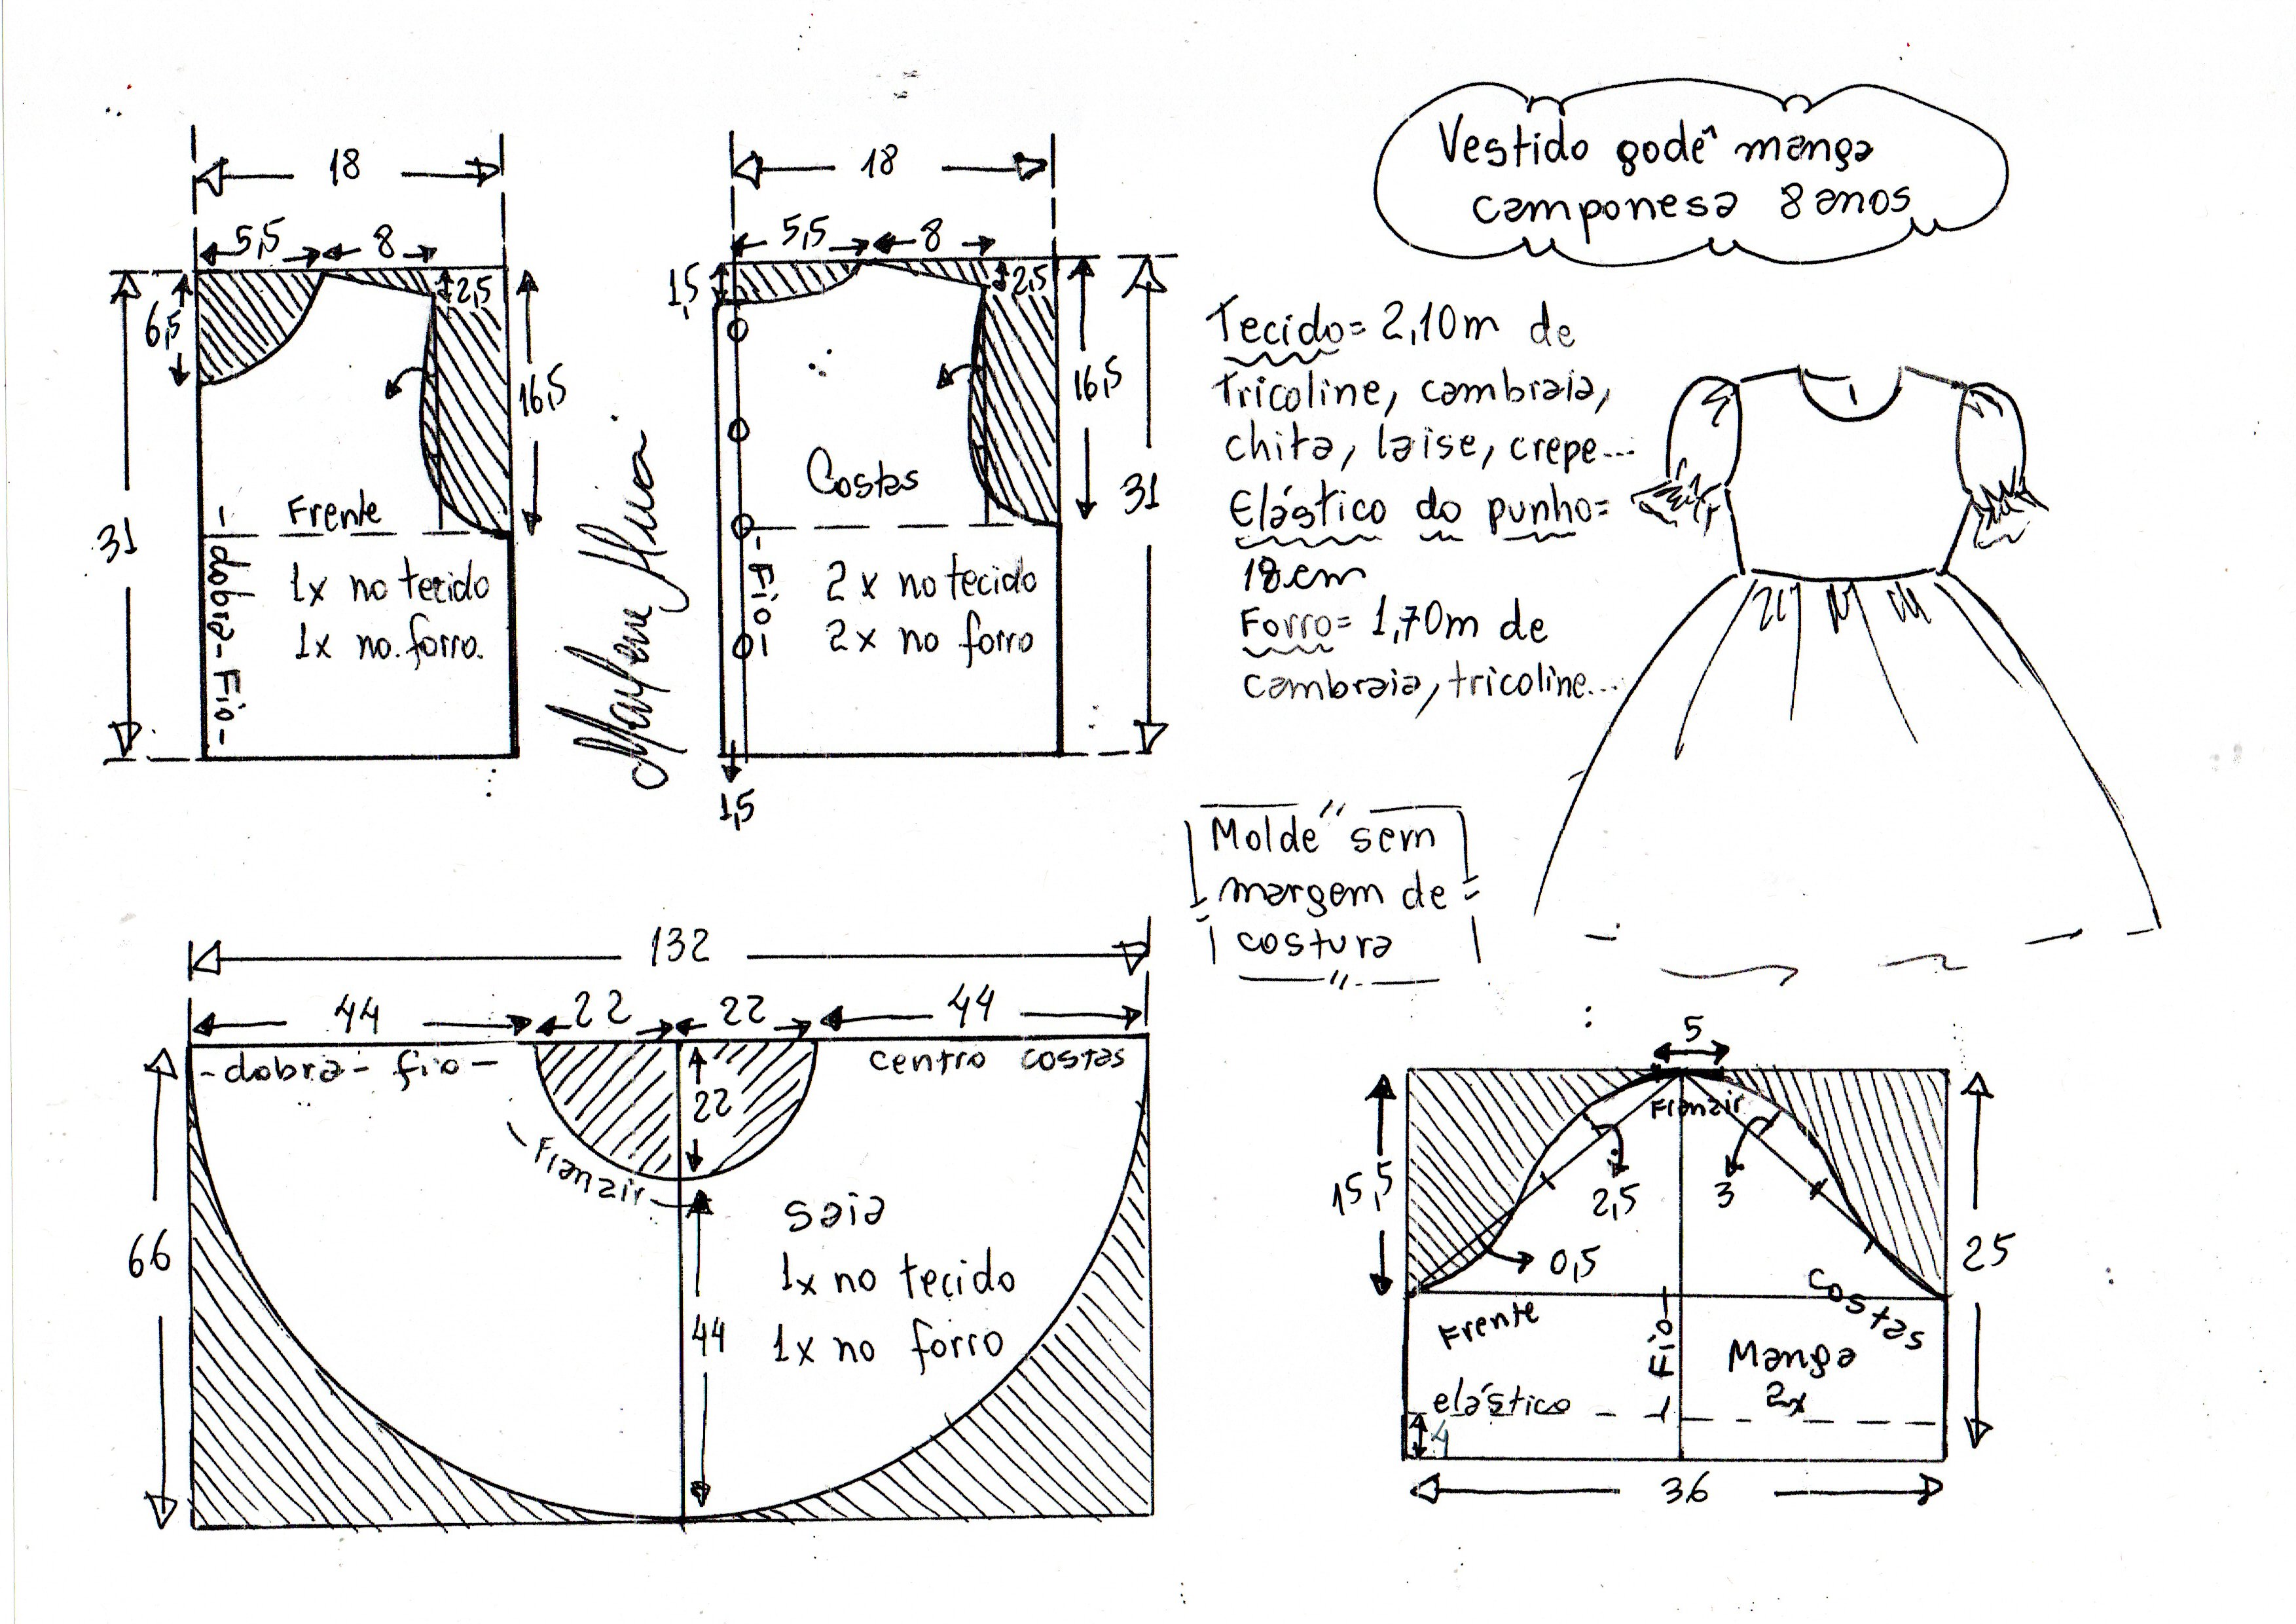 Vestido godê manga
camponesa 8 anos
18
5,5 8
6,5
2,5
16,5
31
Frente
1x no tecido
1x no forro.
- dobra - Fio -
18
5,5 8
1,5
2,5
16,5
31
Costas
2x no tecido
2x no forro
- Fio -
1,5
Tecido= 2,10m de
tricoline, cambraia,
chita, laise, crepe...
Elástico do punho=
18cm
Forro= 1,70m de
cambraia, tricoline...
Molde sem
margem de
costura
132
44 22 22 44
- dobra - fio - centro costas
22
- Franzir -
66
44
saia
1x no tecido
1x no forro
5
Franzir
15,5
2,5 3
0,5
25
Frente
costas
- Fio -
Manga
2x
elástico
4
36